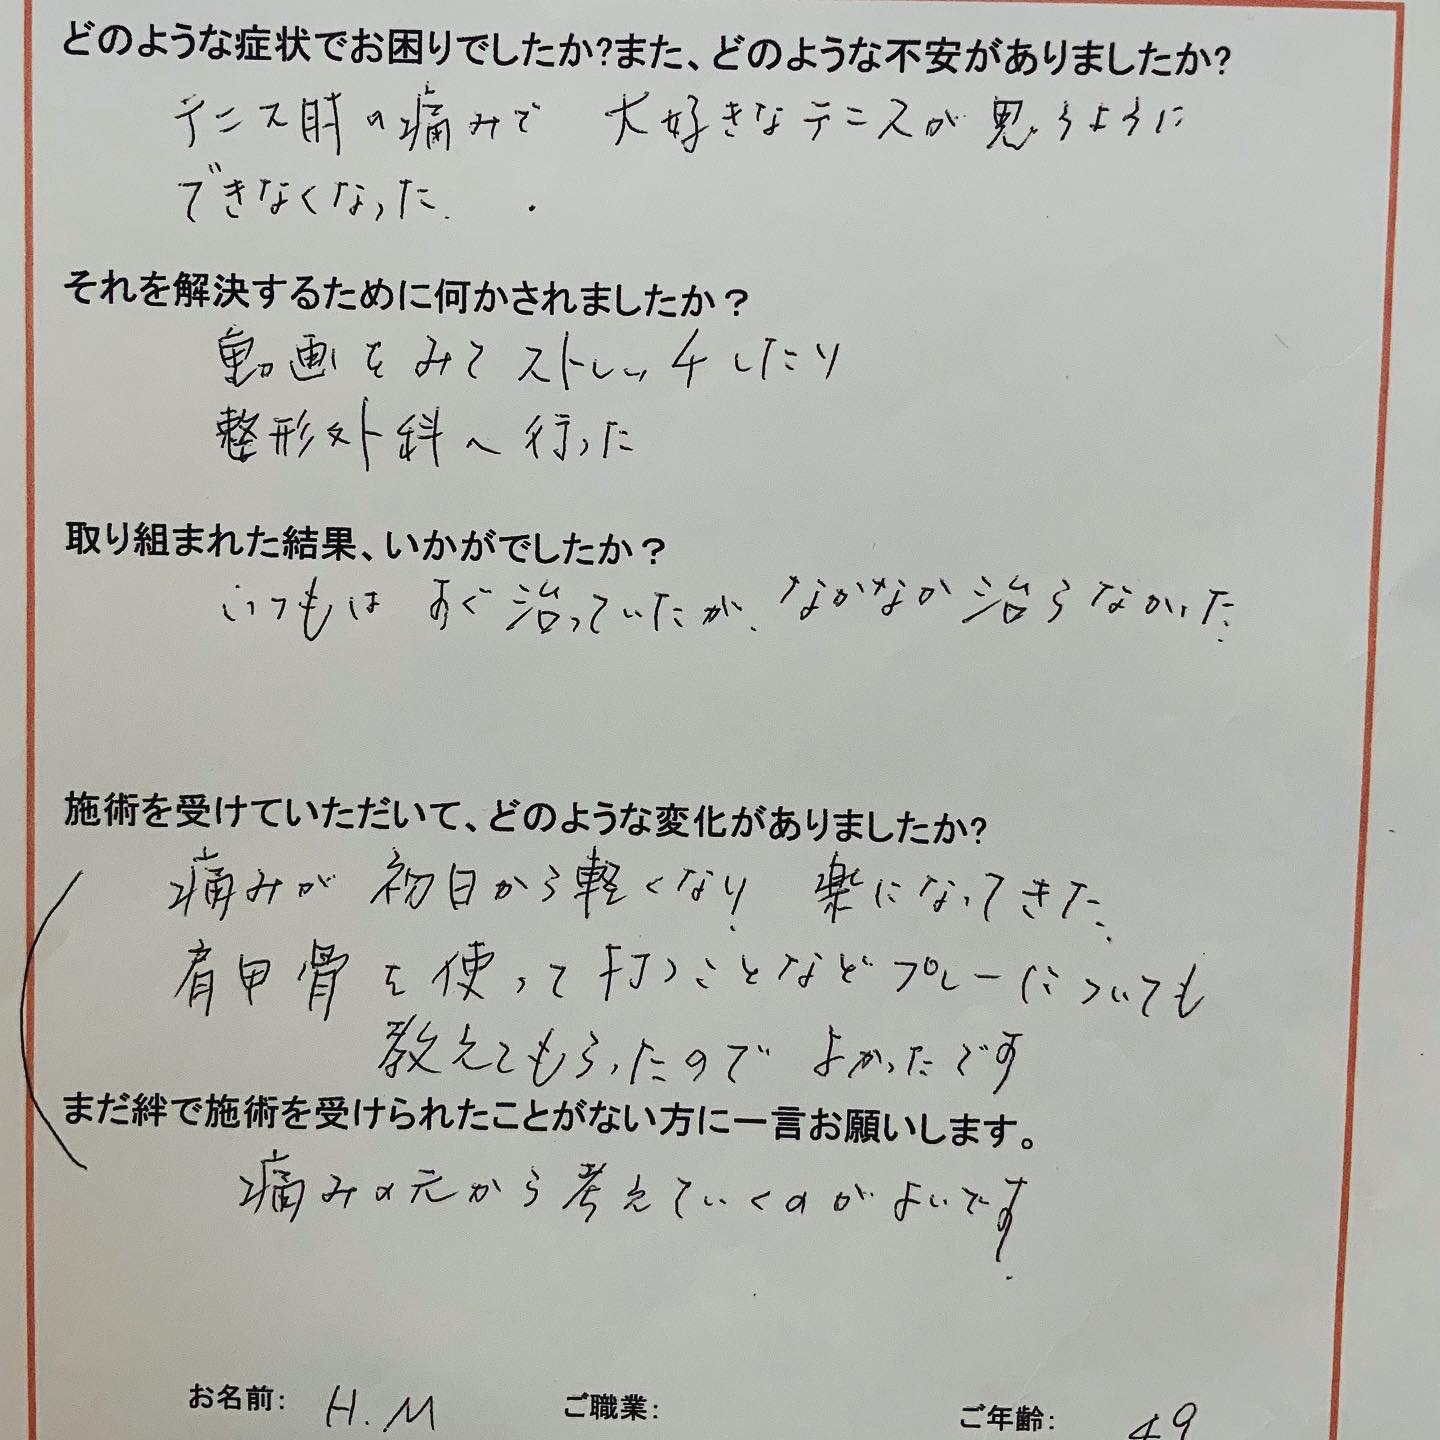 どのような症状でお困りでしたか?また、どのような不安がありましたか?
テニス肘の痛みで 大好きなテニスが思うように
できなくなった.
それを解決するために何かされましたか？
動画をみてストレッチしたり
整形外科へ行った
取り組まれた結果、いかがでしたか？
いつもは すぐ治っていたが、なかなか治らなかった.
施術を受けていただいて、どのような変化がありましたか?
痛みが 初日から軽くなり、楽になってきた.
肩甲骨を使って打つことなどプレーについても
教えてもらったので よかったです
まだ絆で施術を受けられたことがない方に一言お願いします。
痛みの元から考えていくのがよいです.
お名前: H.M ご職業: ご年齢: 49